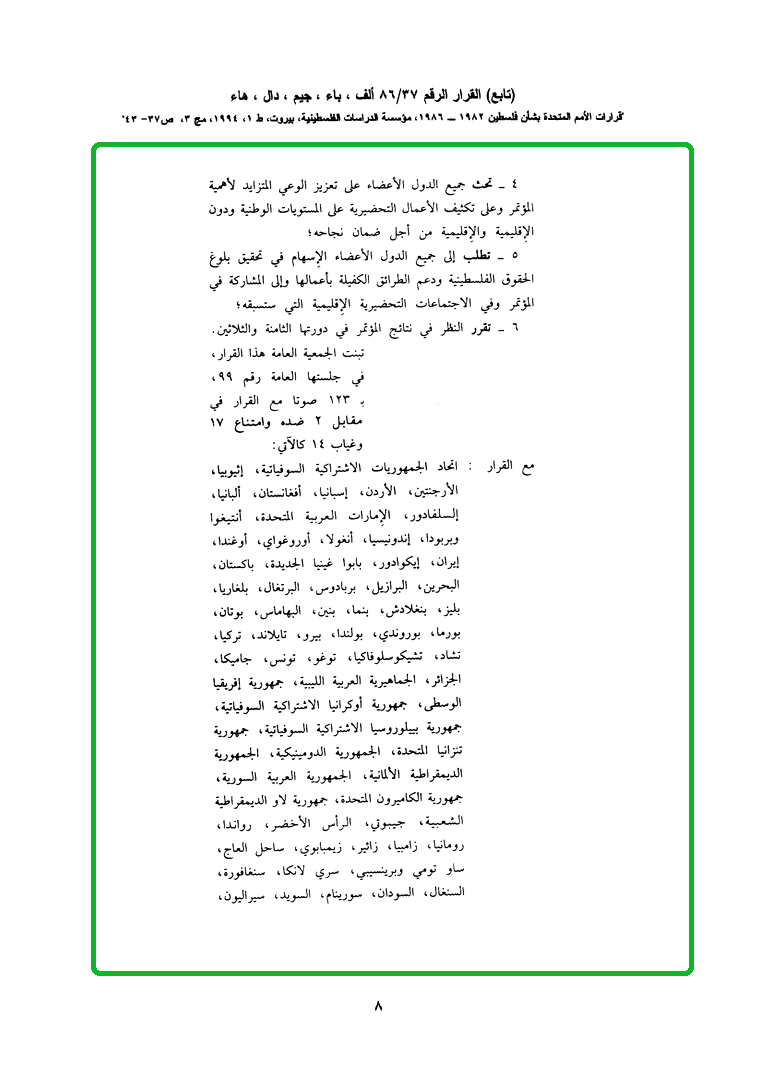 (تابع) القرار الرقم ٨٦/٣٧ ألف ، باء ، جيم ، دال ، هاء
"قرارات الأمم المتحدة بشأن فلسطين ١٩٨٢ ــ ١٩٨٦، مؤسسة الدراسات الفلسطينية، بيروت، ط ١، ١٩٩٤، مج ٣، ص٣٧- ٤٣"
٤ ــ تحث جميع الدول الأعضاء على تعزيز الوعي المتزايد لأهمية
المؤتمر وعلى تكثيف الأعمال التحضيرية على المستويات الوطنية ودون
الإقليمية والإقليمية من أجل ضمان نجاحه؛
٥ ــ تطلب إلى جميع الدول الأعضاء الإسهام في تحقيق بلوغ
الحقوق الفلسطينية ودعم الطرائق الكفيلة بأعمالها وإلى المشاركة في
المؤتمر وفي الاجتماعات التحضيرية الإقليمية التي ستسبقه؛
٦ ــ تقرر النظر في نتائج المؤتمر في دورتها الثامنة والثلاثين.
تبنت الجمعية العامة هذا القرار،
في جلستها العامة رقم ٩٩،
بـ ١٢٣ صوتا مع القرار في
مقابل ٢ ضده وامتناع ١٧
وغياب ١٤ كالآتي:
مع القرار : اتحاد الجمهوريات الاشتراكية السوفياتية، إثيوبيا،
الأرجنتين، الأردن، إسبانيا، أفغانستان، ألبانيا،
إلسلفادور، الإمارات العربية المتحدة، أنتيغوا
وبربودا، إندونيسيا، أنغولا، أوروغواي، أوغندا،
إيران، إيكوادور، بابوا غينيا الجديدة، باكستان،
البحرين، البرازيل، بربادوس، البرتغال، بلغاريا،
بليز، بنغلادش، بنما، بنين، البهاماس، بوتان،
بورما، بوروندي، بولندا، بيرو، تايلاند، تركيا،
تشاد، تشيكوسلوفاكيا، توغو، تونس، جاميكا،
الجزائر، الجماهيرية العربية الليبية، جمهورية إفريقيا
الوسطى، جمهورية أوكرانيا الاشتراكية السوفياتية،
جمهورية بييلوروسيا الاشتراكية السوفياتية، جمهورية
تنزانيا المتحدة، الجمهورية الدومينيكية، الجمهورية
الديمقراطية الألمانية، الجمهورية العربية السورية،
جمهورية الكاميرون المتحدة، جمهورية لاو الديمقراطية
الشعبية، جيبوتي، الرأس الأخضر، رواندا،
رومانيا، زامبيا، زائير، زيمبابوي، ساحل العاج،
ساو تومي وبرينسيبي، سري لانكا، سنغافورة،
السنغال، السودان، سورينام، السويد، سيراليون،
٨